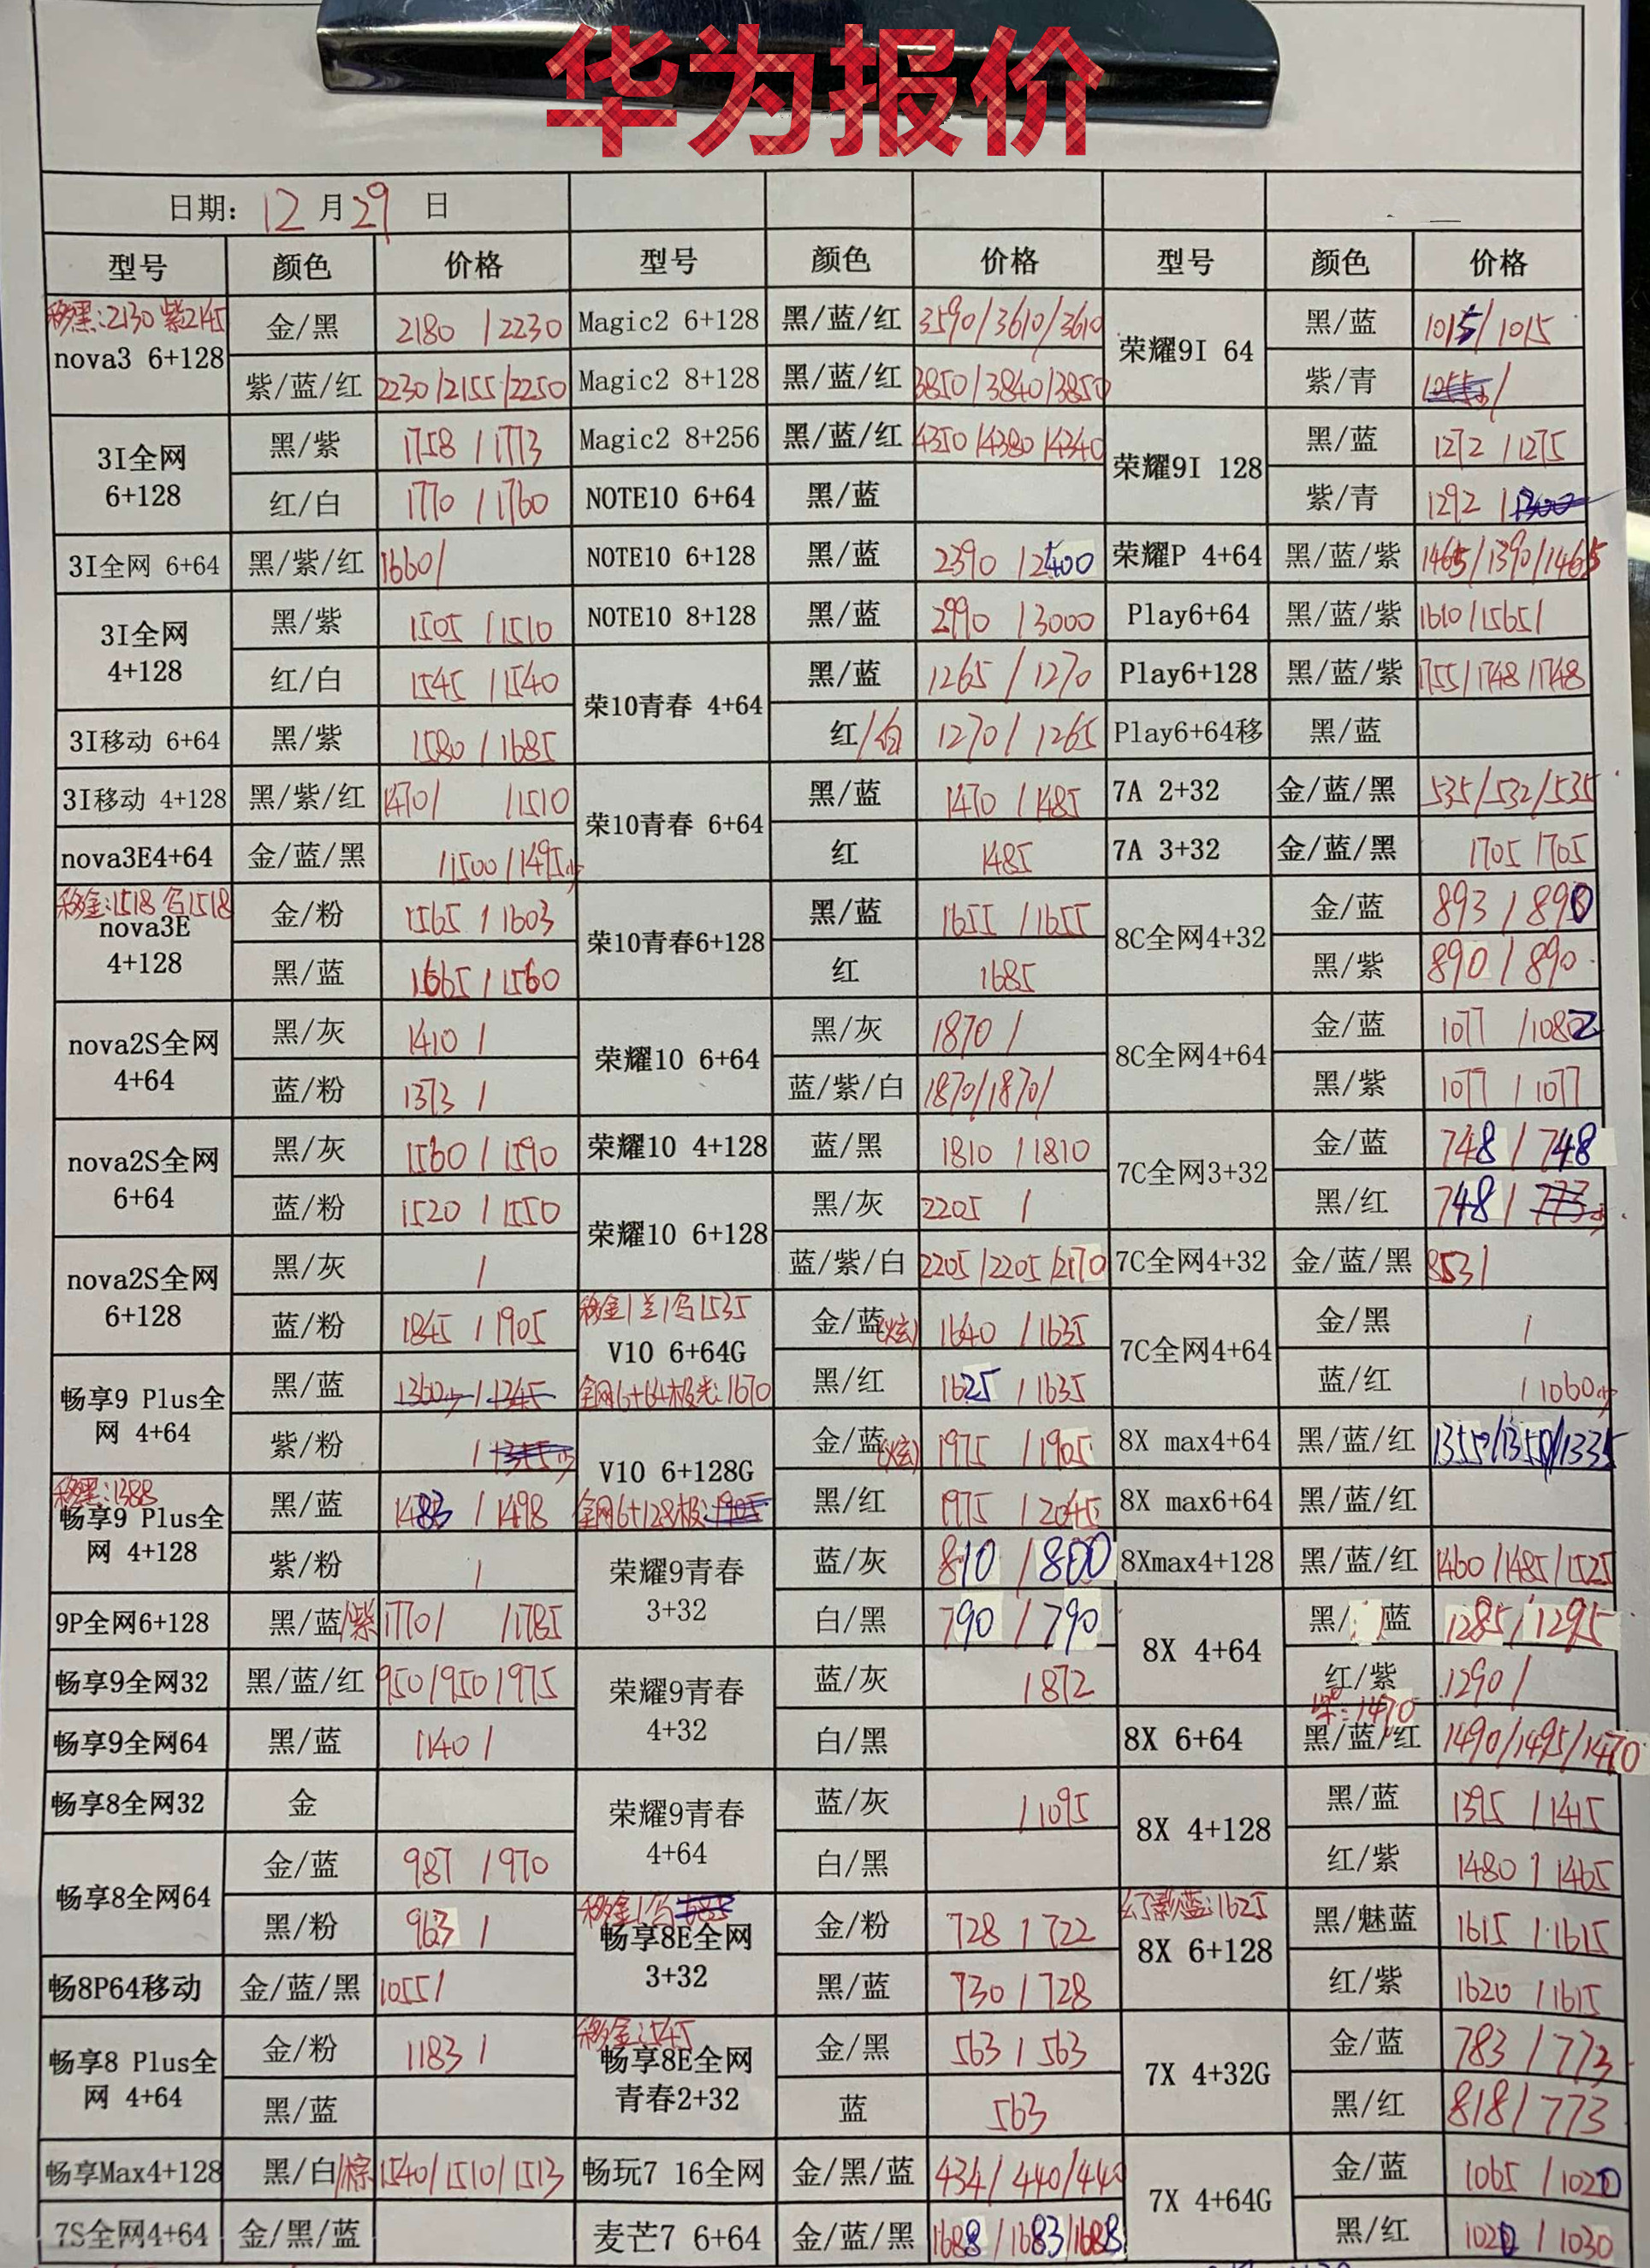 华为报价
日期: 12 月 29 日
型号 颜色 价格 型号 颜色 价格 型号 颜色 价格
移黑:2130 紫2145
nova3 6+128
金/黑 2180 /2230
紫/蓝/红 2230/2155/2250
3I全网
6+128
黑/紫 1758 /1773
红/白 1770 /1760
3I全网 6+64 黑/紫/红 1660/
3I全网
4+128
黑/紫 1505 /1510
红/白 1545 /1540
3I移动 6+64 黑/紫 1580 /1685
3I移动 4+128 黑/紫/红 1470/ /1510
nova3E4+64 金/蓝/黑 /1500/1495少
移金:1518 1518
nova3E
4+128
金/粉 1565 /1603
黑/蓝 1665/1560
nova2S全网
4+64
黑/灰 1410 /
蓝/粉 1373 /
nova2S全网
6+64
黑/灰 1560 /1590
蓝/粉 1520 /1550
nova2S全网
6+128
黑/灰 /
蓝/粉 1845 /1905
畅享9 Plus全
网 4+64
黑/蓝 1360少/1345
紫/粉 /
移黑:1388
畅享9 Plus全
网 4+128
黑/蓝 1483 /1498
紫/粉 /
9P全网6+128 黑/蓝/紫 1770/ /1785
畅享9全网32 黑/蓝/红 950/950/975
畅享9全网64 黑/蓝 1140/
畅享8全网32 金
畅享8全网64
金/蓝 987 /970
黑/粉 963 /
畅8P64移动 金/蓝/黑 1055/
畅享8 Plus全
网 4+64
金/粉 1183 /
黑/蓝
畅享Max4+128 黑/白/棕 1540/1510/1513
7S全网4+64 金/黑/蓝
Magic2 6+128 黑/蓝/红 3590/3610/3610
Magic2 8+128 黑/蓝/红 3850/3840/3850
Magic2 8+256 黑/蓝/红 4350/4380/4340
NOTE10 6+64 黑/蓝
NOTE10 6+128 黑/蓝 2390 /2400
NOTE10 8+128 黑/蓝 2990 /3000
荣10青春 4+64
黑/蓝 1265 /1270
红/白 1270/ 1265
荣10青春 6+64
黑/蓝 1470 /1485
红 1485
荣10青春6+128
黑/蓝 1655 /1655
红 1685
荣耀10 6+64
黑/灰 1870 /
蓝/紫/白 1870/1870/
荣耀10 4+128 蓝/黑 1810 /1810
荣耀10 6+128
黑/灰 2205 /
蓝/紫/白 2205/2205/2170
移金/兰/ 1535
V10 6+64G
全网6+64极光:1670
金/蓝(炫) 1640 /1635
黑/红 1625 /1635
V10 6+128G
全网6+128极:1905
金/蓝(炫) 1975 /1905
黑/红 1975 /2045
荣耀9青春
3+32
蓝/灰 810 /800
白/黑 790 /790
荣耀9青春
4+32
蓝/灰 /872
白/黑
荣耀9青春
4+64
蓝/灰 /1095
白/黑
移金/
畅享8E全网
3+32
金/粉 728 /722
黑/蓝 730 /728
移金:545
畅享8E全网
青春2+32
金/黑 563 /563
蓝 563
畅玩7 16全网 金/黑/蓝 434/440/440
麦芒7 6+64 金/蓝/黑 1688/1683/1688
荣耀9I 64
黑/蓝 1015/1015
紫/青 /
荣耀9I 128
黑/蓝 1272 /1275
紫/青 1292 /1300
荣耀P 4+64 黑/蓝/紫 1465/1390/1465
Play6+64 黑/蓝/紫 1610/1565/
Play6+128 黑/蓝/紫 1755/1748/1748
Play6+64移 黑/蓝
7A 2+32 金/蓝/黑 535/532/535
7A 3+32 金/蓝/黑 /705 /705
8C全网4+32
金/蓝 893 /890
黑/紫 890 /890
8C全网4+64
金/蓝 1077 /1082
黑/紫 1077 /1077
7C全网3+32
金/蓝 748 /748
黑/红 748 /773
7C全网4+32 金/蓝/黑 853/
7C全网4+64
金/黑 /
蓝/红 /1060少
8X max4+64 黑/蓝/红 1355/1350/1335
8X max6+64 黑/蓝/红
8Xmax4+128 黑/蓝/红 1460/1485/1525
8X 4+64
黑/ 蓝 1285/1295
红/紫 1290/
8X 6+64
紫:1470
黑/蓝/红 1490/1495/1470
8X 4+128
黑/蓝 1395 /1415
红/紫 1480 /1465
幻影蓝:1625
8X 6+128
黑/魅蓝 1615 /1615
红/紫 1620 /1615
7X 4+32G
金/蓝 783 /773
黑/红 818/773
7X 4+64G
金/蓝 1065 /1020
黑/红 1020 /1030